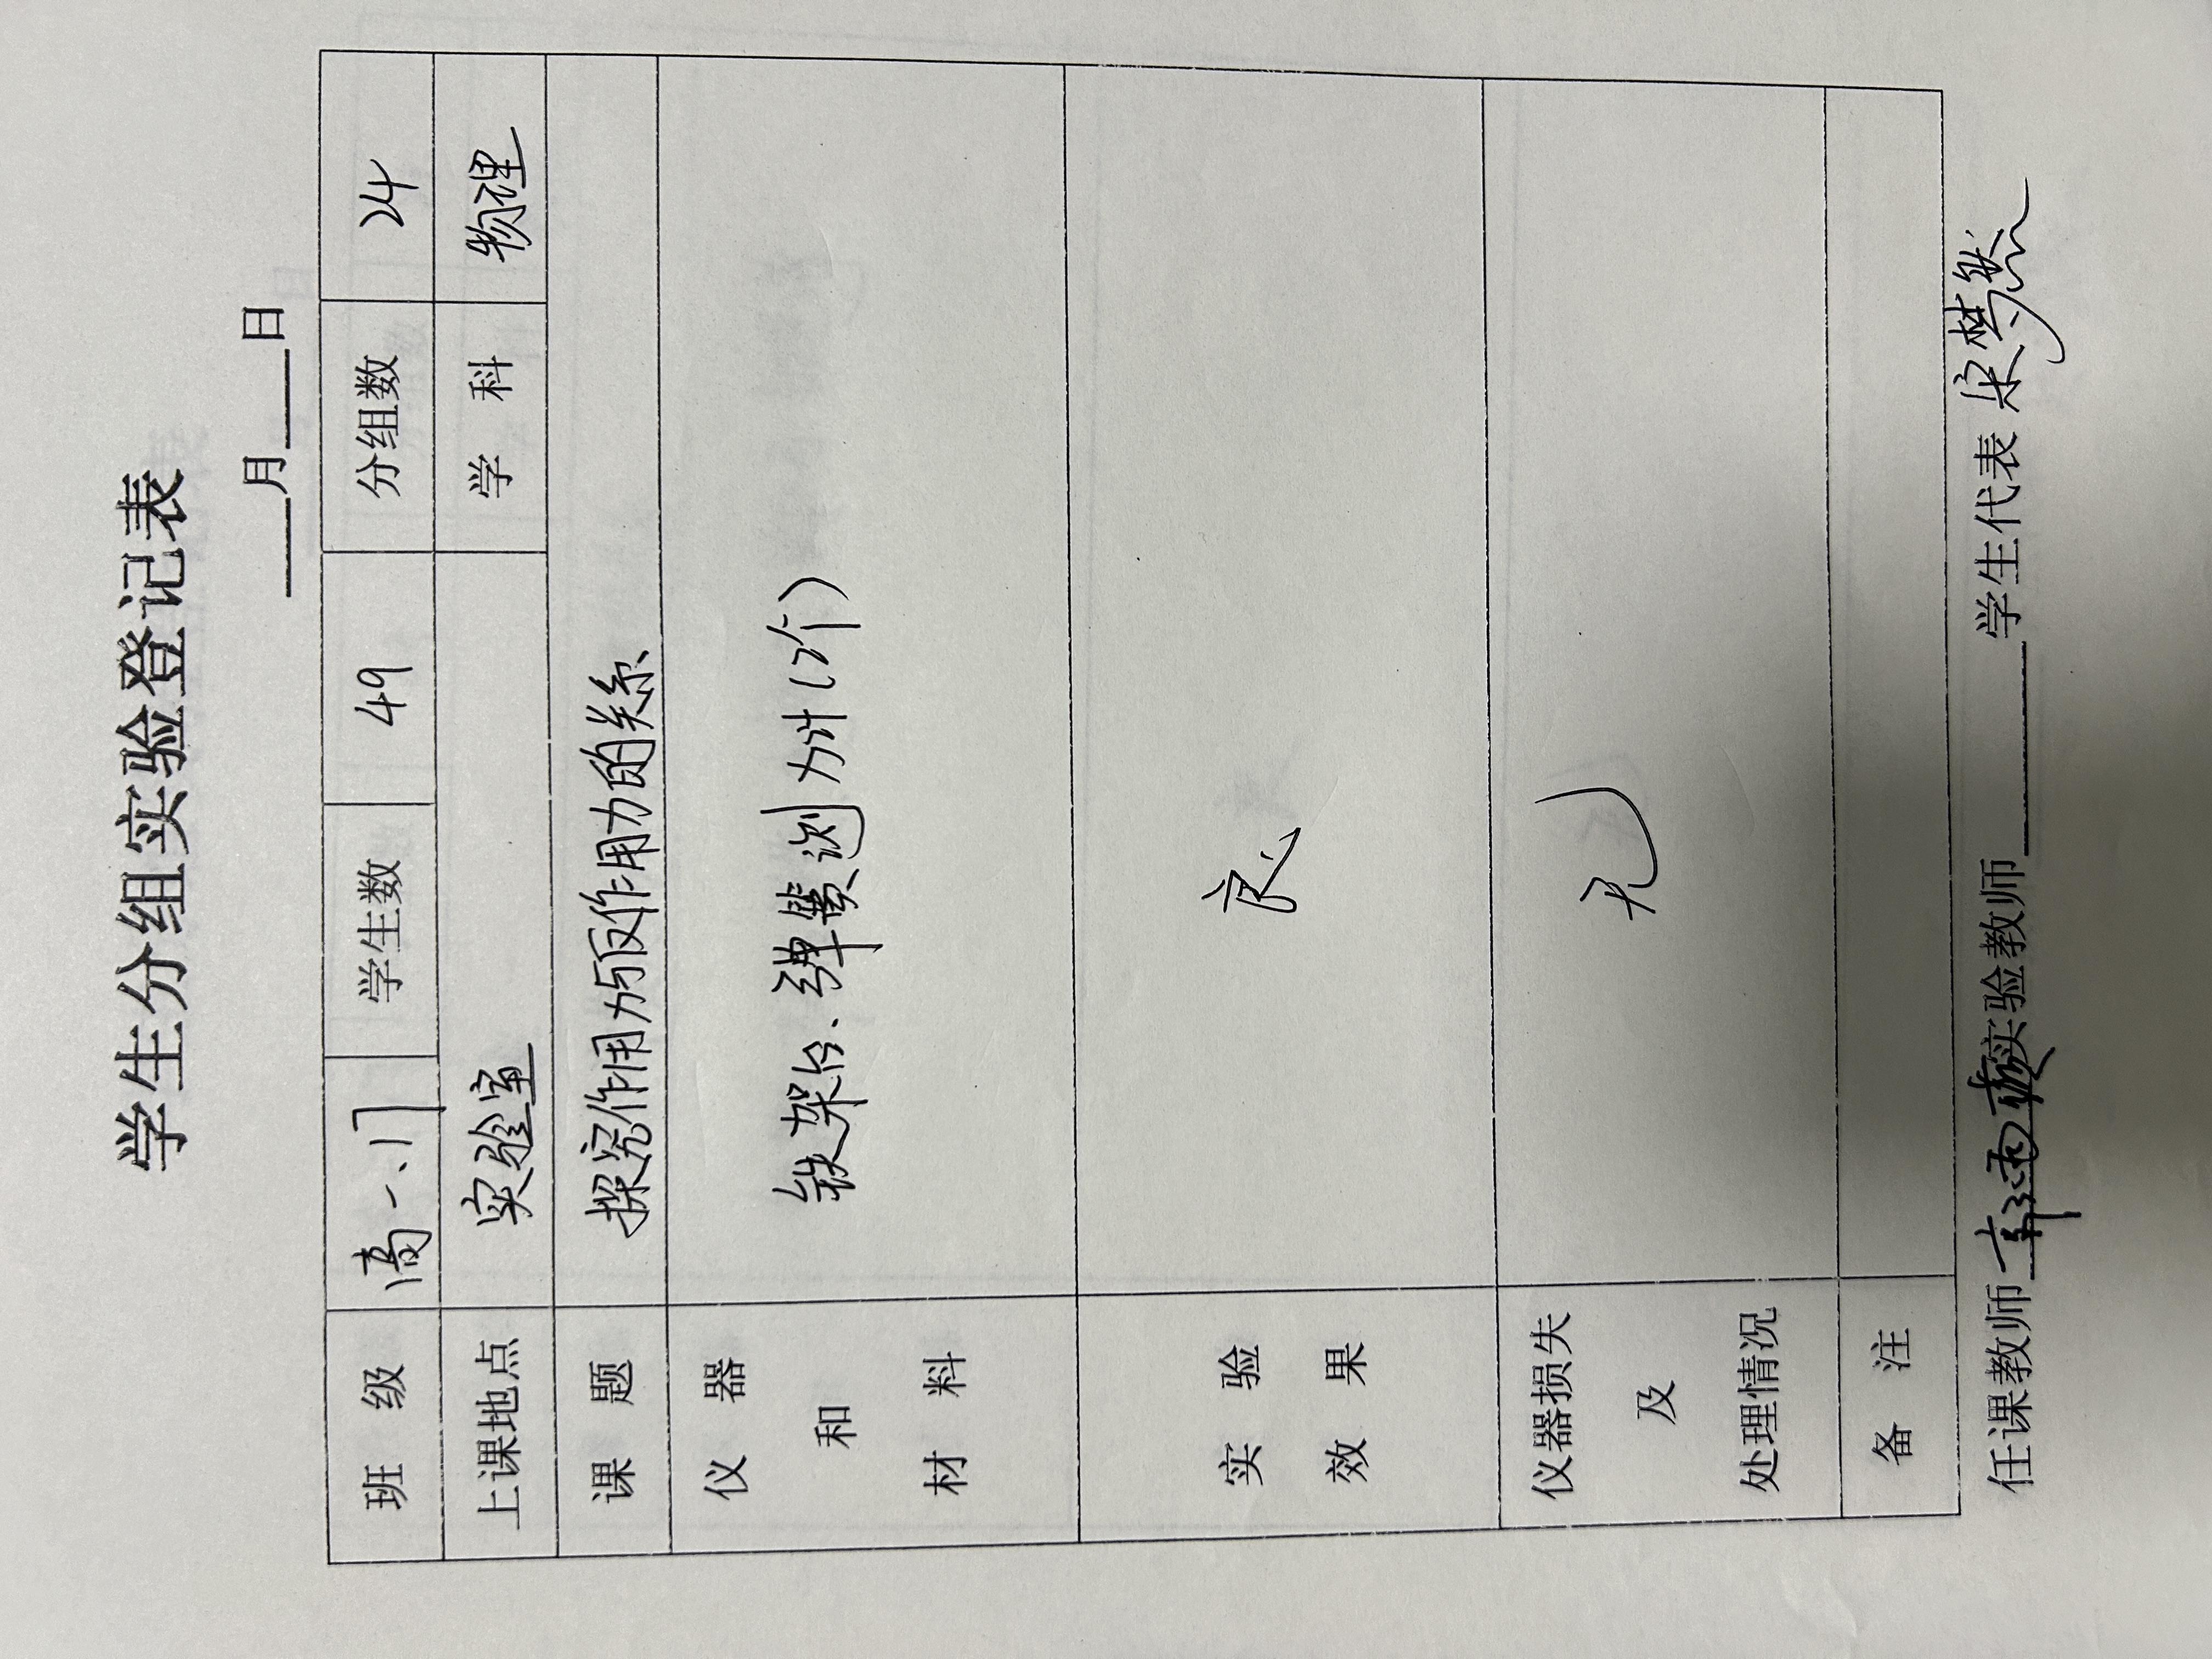 学生分组实验登记表
___月___日
班 级 高一、17 学生数 49 分组数 24
上课地点 实验室 学 科 物理
课 题 探究作用力与反作用力的关系
仪 器
和
材 料
铁架台、弹簧测力计(2个)
实 验
效 果
良
仪器损失
及
处理情况
无
备 注
任课教师 实验教师______学生代表